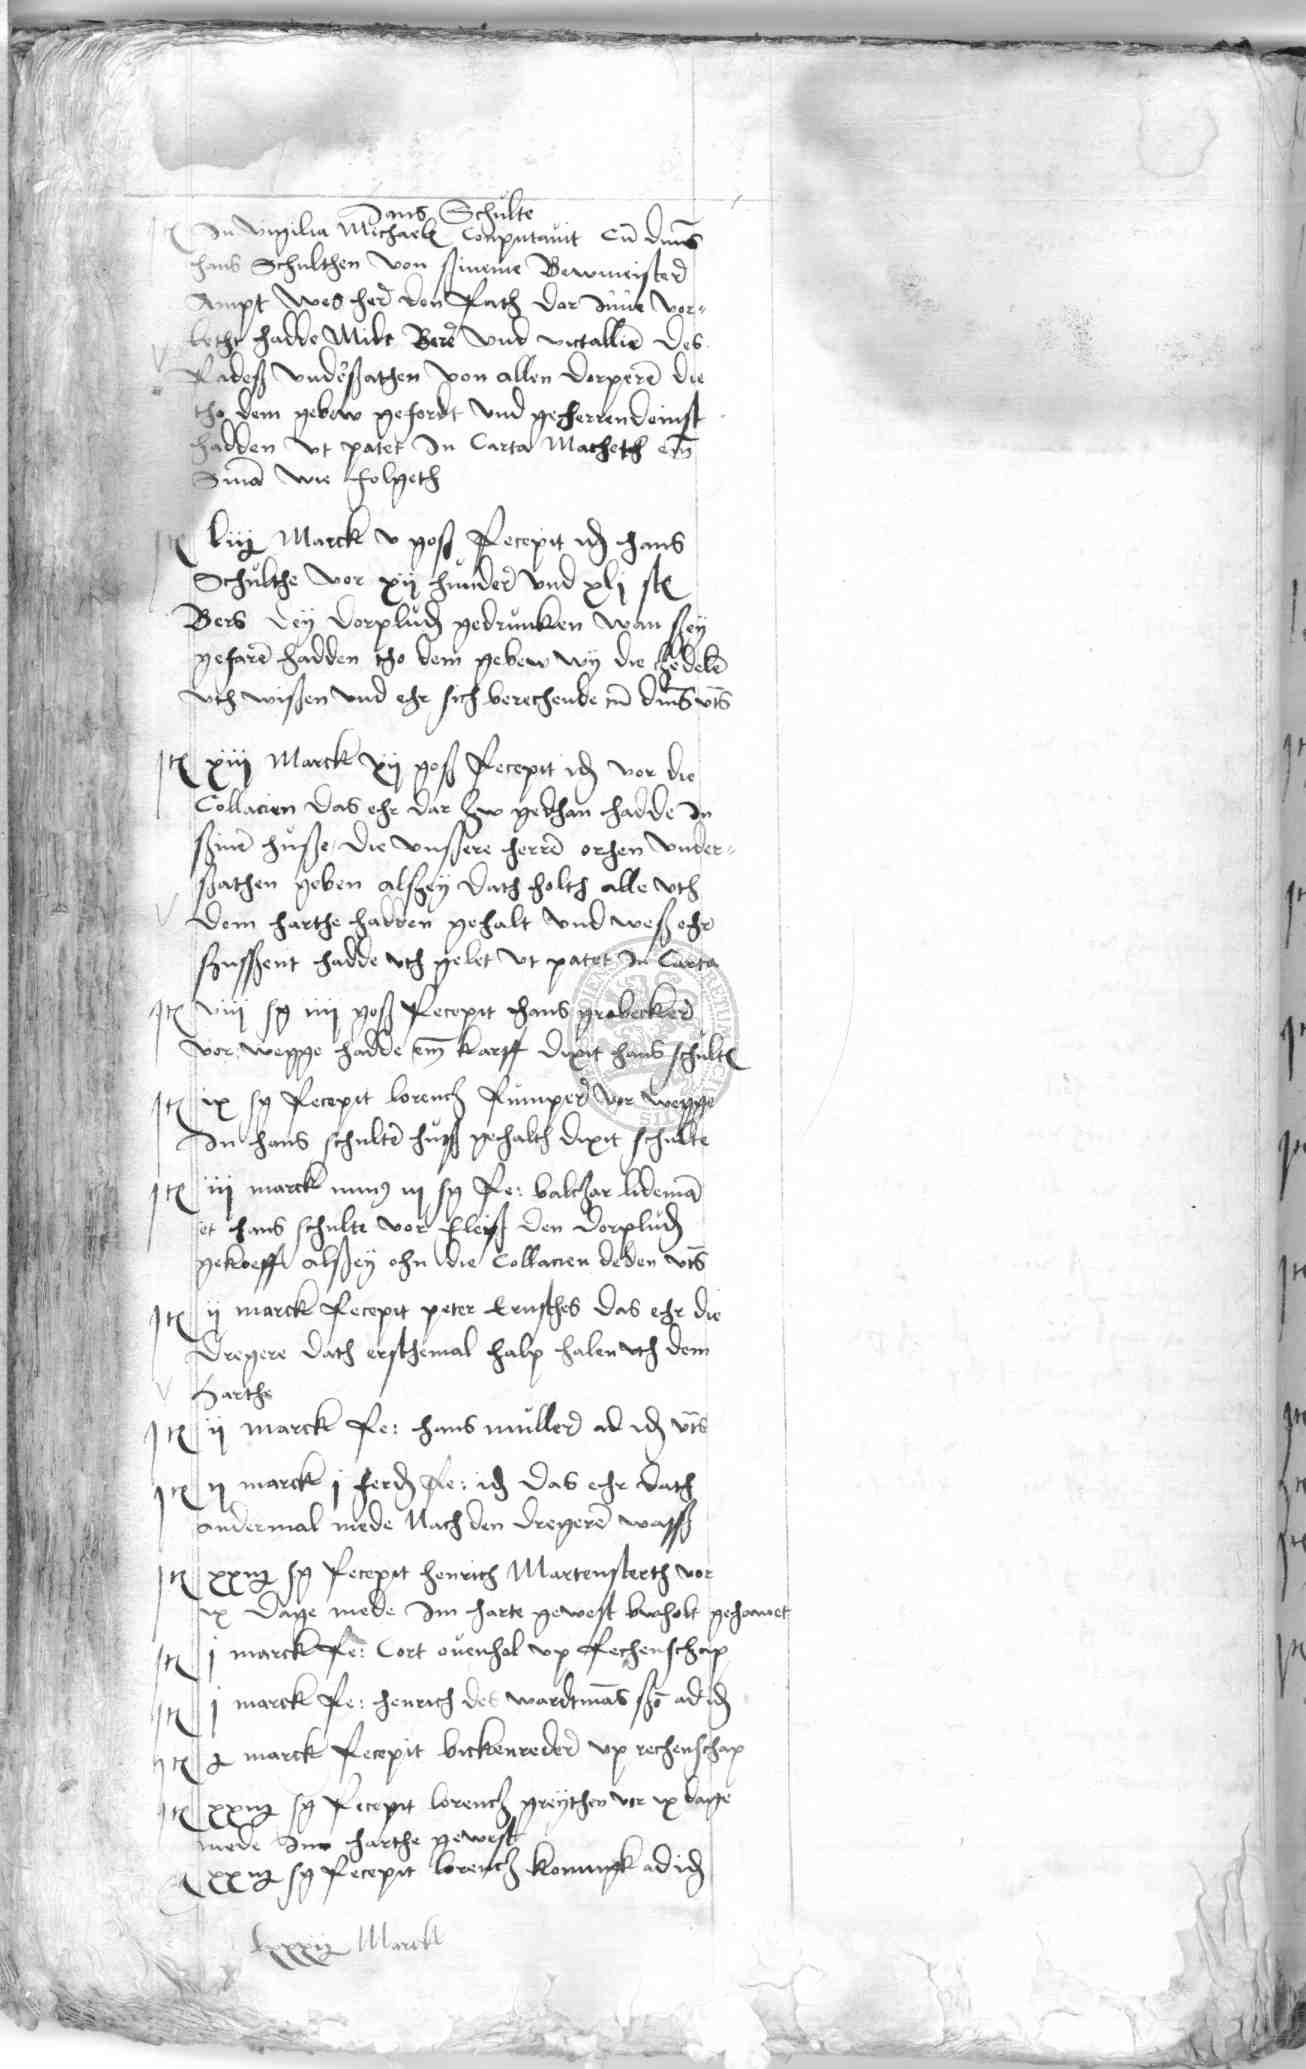 Hans Schulte
Itē In vigilia Michaelē Computauit Cū dnīs
hans Schulthen von ssineme Bewmeisterē
Ampt Wes herē den Rath dar Inne vor-
lecht hadde Midt Berē vnd victallie des
Radeß vnderßathen von allen dorperē die
tho dem gebew gefordt vnd geherrendeinst
hadden vt patet In Carta Macheth em
Sūma wie folgeth
Itē Marck v goß Recepit idē hans
Schulthe vor xij hunderē vnd xlj stē
Bers dey dorpludē gedrunken wan ssey
gefarē hadden tho dem gebew wy die zedelē
vth wißen vnd ehr sich berechende cū dnīs vts
Itē xiij Marck xij goß Recepit idē vor die
Collacien das ehr dar zw gethan hadde In
ssinē husse die vnssere herrē orhen vnder-
ssathen geben alssey dath holth alle vth
dem harthe hadden gehalt vnd weß ehr
ssussent hadde vth gelet vt patet In Carta
Itē viij sg iiij goß Recepit hans grobeckerē
vor wegge hadde em karff dixit hans schultē
Itē ix sg Recepit lorentz Rumperē vor wegge
In hans schultē huß gehalth dixit schulte
Itē iij marck min9 iij sg Re: baltzar lidemā
et hans schulte vor fleiß den dorpludē
gekoefft alssey ohn die Collacien deden vts
Itē ij marck Recepit peter Ernsthes das ehr die
dregere dath ersthemal halp halen vth dem
Harthe
Itē ij marck Re: hans mullerē ad idē vts
Itē ij marck j ferdē Re: idē das ehr dath
andermal mede Nach den dregerē waß
Itē sg Recepit henrich Martensterth vor
ix dage mede Im harte gewest bwholt gehowet
Itē j marck Re: Cort ouenhol vp Rechenschap
Itē j marck Re: henrich des wardtmās ssō ad idē
Itē marck Recepit bickenrederē vp rechenschap
Itē sg Recepit lorentz greythen vor ix dage
mede Im harthe gewest
Itē sg Recepit lorentz konningk ad idē
Marck